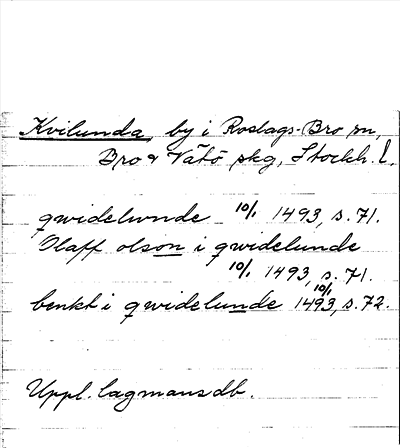 Kvilunda, by i Roslags-Bro sn,
Bro o Vätö skg, Stockh. l.
qwidelwnde 10/1 1493, s. 71.
Olaff olson i qwidelunde
10/1 1493, s. 71.
benkt i qwidelunde 10/1 1493, s. 72.
Uppl. lagmansdb.